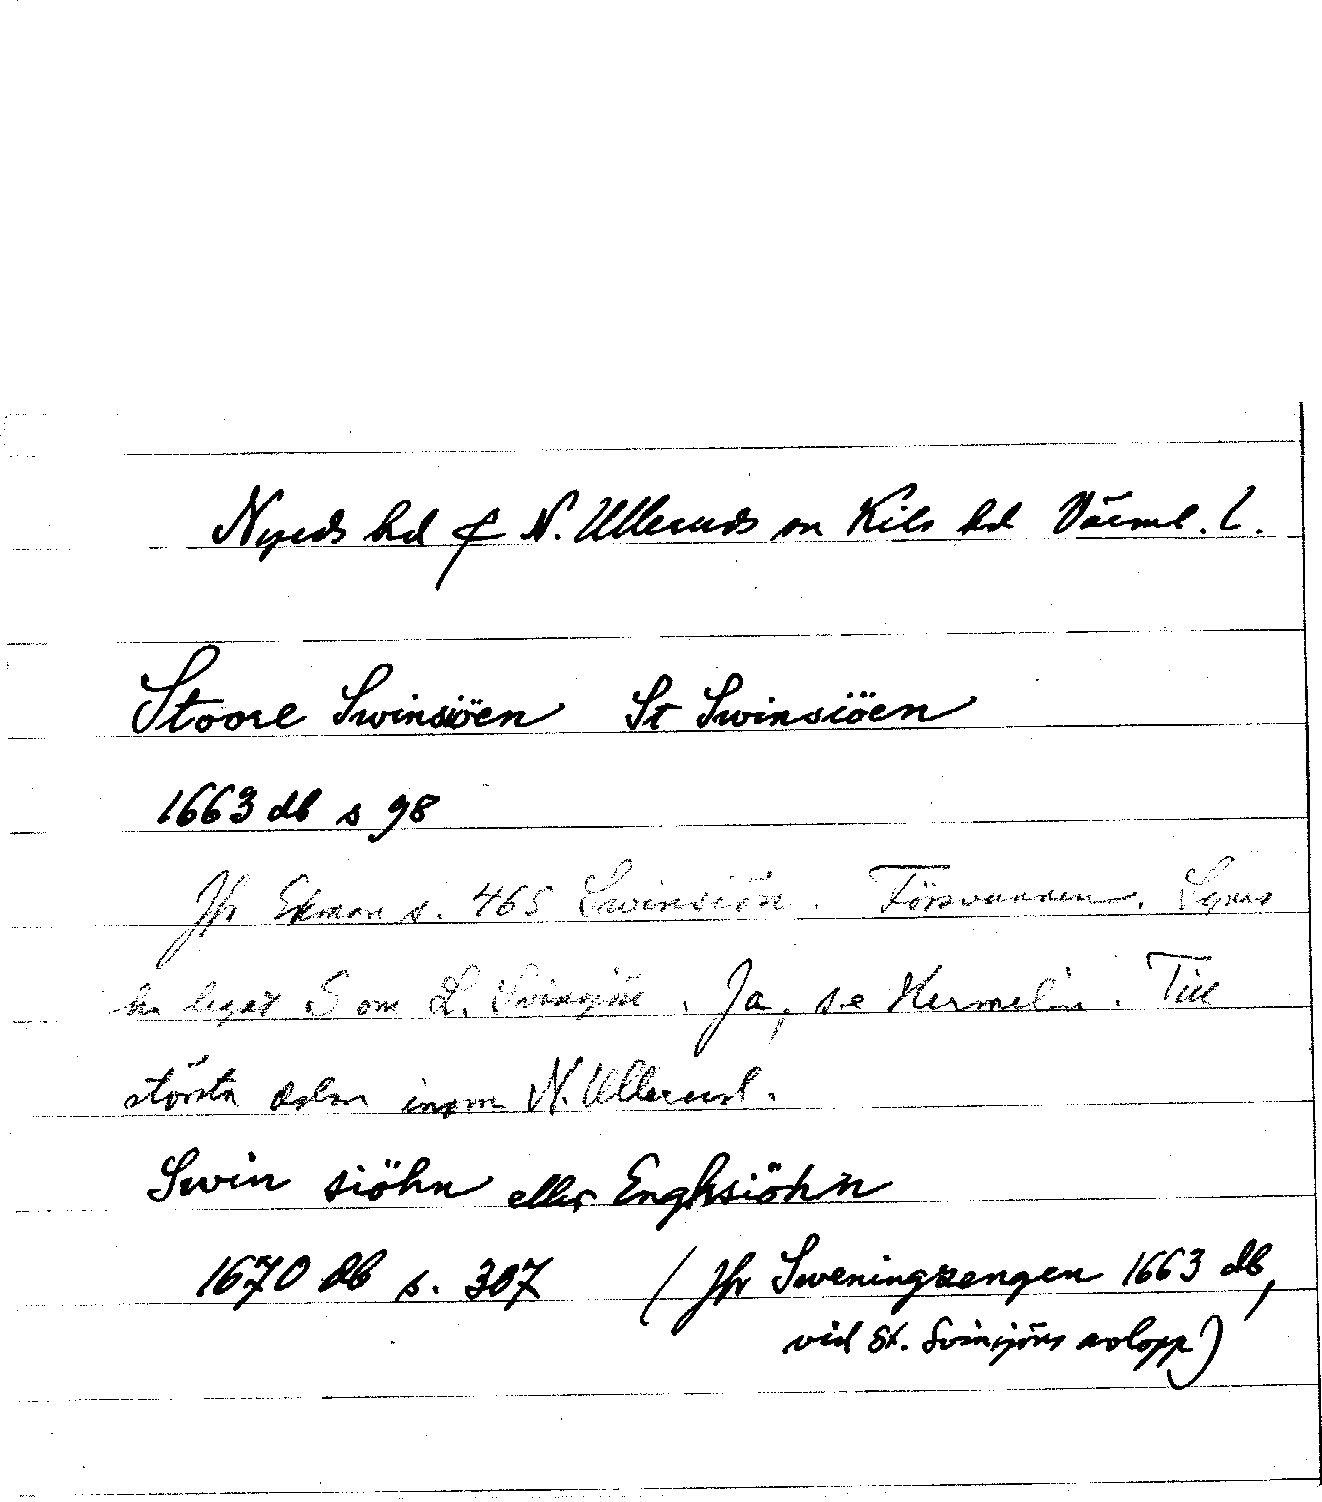 Nyeds hd & N. Ulleruds sn Kils hd Värml. L.
Stoore Swinsiöen St Swinsiöen
1663 db s 98
Jfr Ekman s. 465 Swinsiön. Försvunnen. Synes
ha legat S om L. Svinsjön. Ja, se Hermelin. Till
största delen inom N. Ullerud.
Swin siöhn eller Enghsiöhn
1670 db s. 307 (Jfr Sweningzengen 1663 db,
vid St. Svinsjöns avlopp)